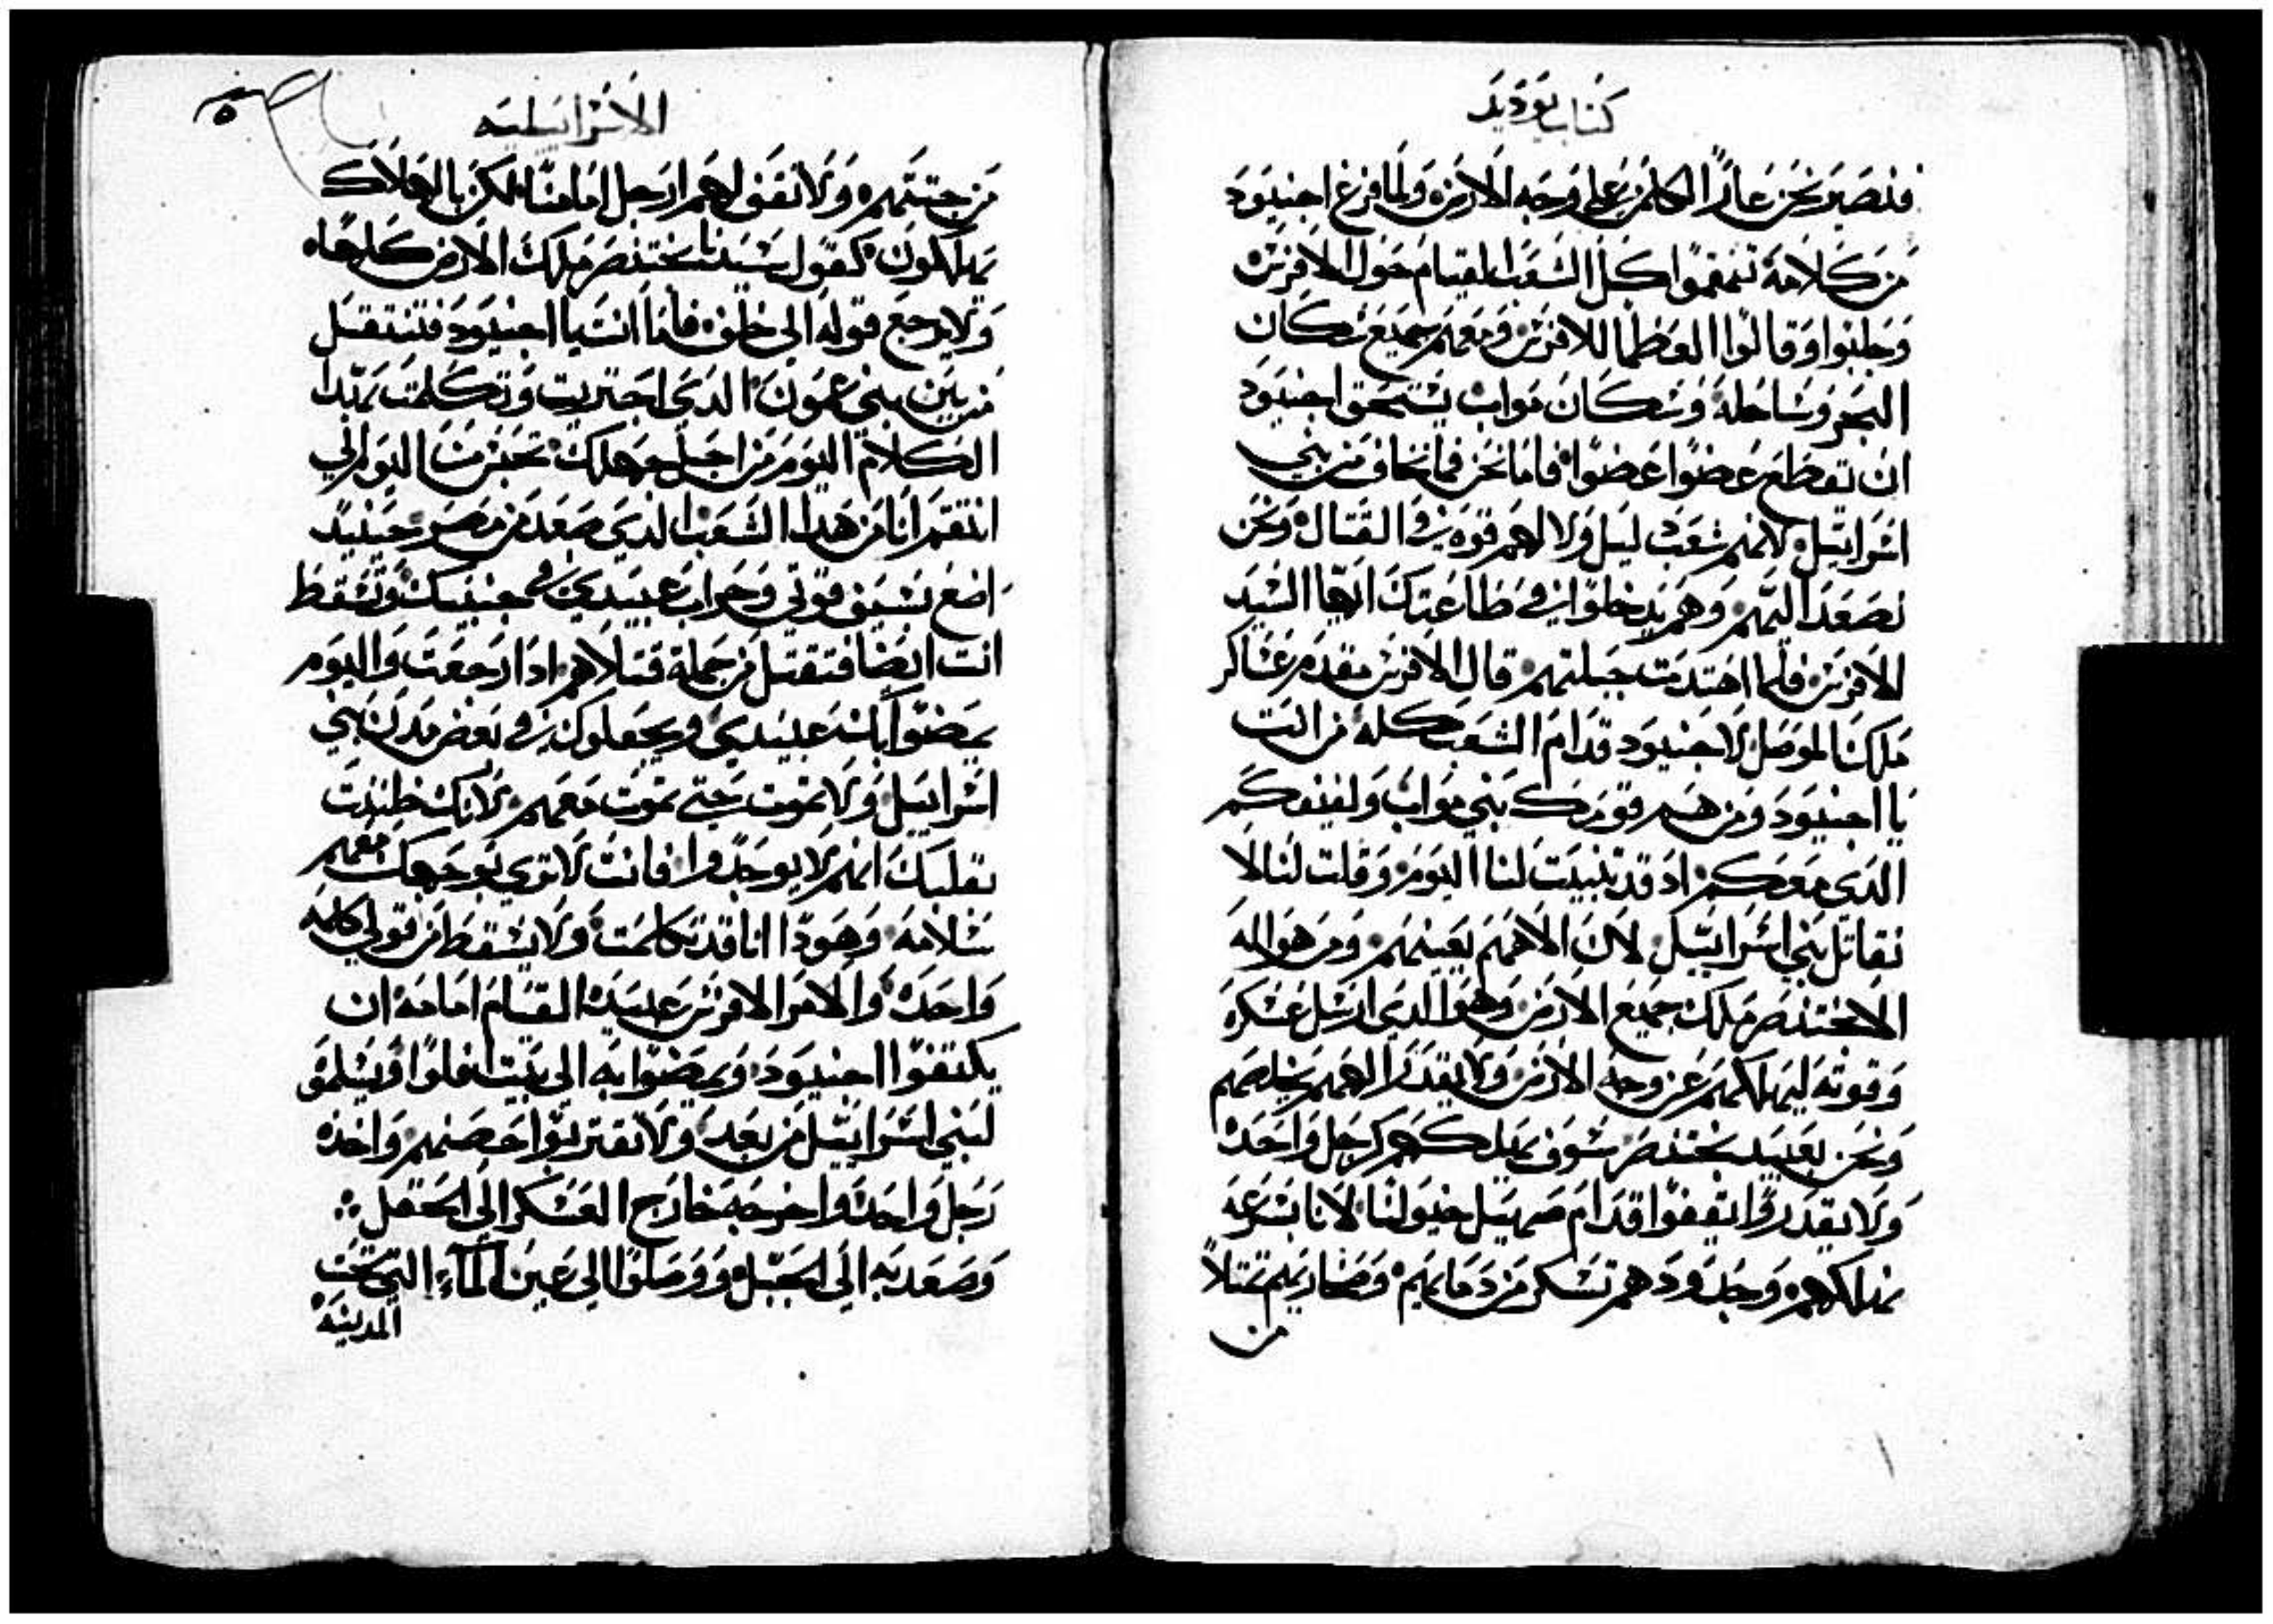 كتاب يوديد
فنصير نحن عارًا لكلمن على وجه الارض ولما فرغ اجنيود
من كلامه تقمقموا كل الشعب القيام حول الافرنس
وجلبوا وقالوا العظما للافرنس ومعهم جميع سكان
البحر وساحله وسكان مواب يستحق اجنيود
ان تقطع عضوا عضوا فاما نحن فما نخاف من بني
اسراييل لانهم شعب ليس ولا لهم قوه في القتال ونحن
نصعد اليهم وهم يدخلوا في طاعتك ايها السيد
الافرنس فلما اهتدت جبلتهم قال الافرنس مقدم عساكر
ملك الموصل لاجنيود قدام الشعب كله من انت
يا اجنيود ومن هم قومك بني مواب ولفيفكم
الدي معكم اد قد تنبيت لنا اليوم وقلت لنا لا
نقاتل بني اسراييل لان الاههم يعينهم ومن هو اله
الا بختنصر ملك جميع الارض وهو الدي ارسل عسكره
وقوته ليهلكهم عن وجه الارض ولا يقدر الههم يخلصهم
ونحن بعبيد بختنصر سوف نهلكهم كرجل واحد
ولا يقدروا يقفوا قدام صهيل خيولنا لانا بسرعه
نهلكهم وحدودهم تسكر من دمايهم وصحاريهم تمتلا
من
الاسراييليه
من جتتهم ولا تقف لهم ارجل امامنا لكن بالهلاك
يهلكون كقول سيدنا بختنصر ملك الارض كلها
ولا يرجع قوله الى خلف فاما انت يا اجنيود فتنتقل
من بين بني عمون الدي اجتريت وتكلمت بهدا
الكلام اليوم من اجل جهلك تحبر من اليوم الي
انتقم انا من هدا الشعب الدي صعد من مصر حينيد
اضع بسيف قوتي وحراب عبيدي في جنبيك وتسقط
انت ايضا فتقتل من جملة قتلاهم ادا رجعت واليوم
يمضوا بك عبيدي ويجعلوك في بعض مدن بني
اسراييل ولا تموت حتى تموت معهم لانك ظننت
بقلبك انهم لا يوجدوا فانت لا تري بوجهك معهم
سلامه وهودا انا قد تكلمت ولا يسقط من قولي كلمه
واحده والامر الافرنس عبيده القيام امامه ان
يكتفوا اجنيود ويمضوا به الى بيت افلوا ويسلموه
لبني اسراييل من بعد ولا تقتربوا حصنهم واخده
رجل واحد واخرجه خارج العسكر الى الحقل
وصعد به الى الجبل ووصلوا الى عين الماء التي تحت
المدينه